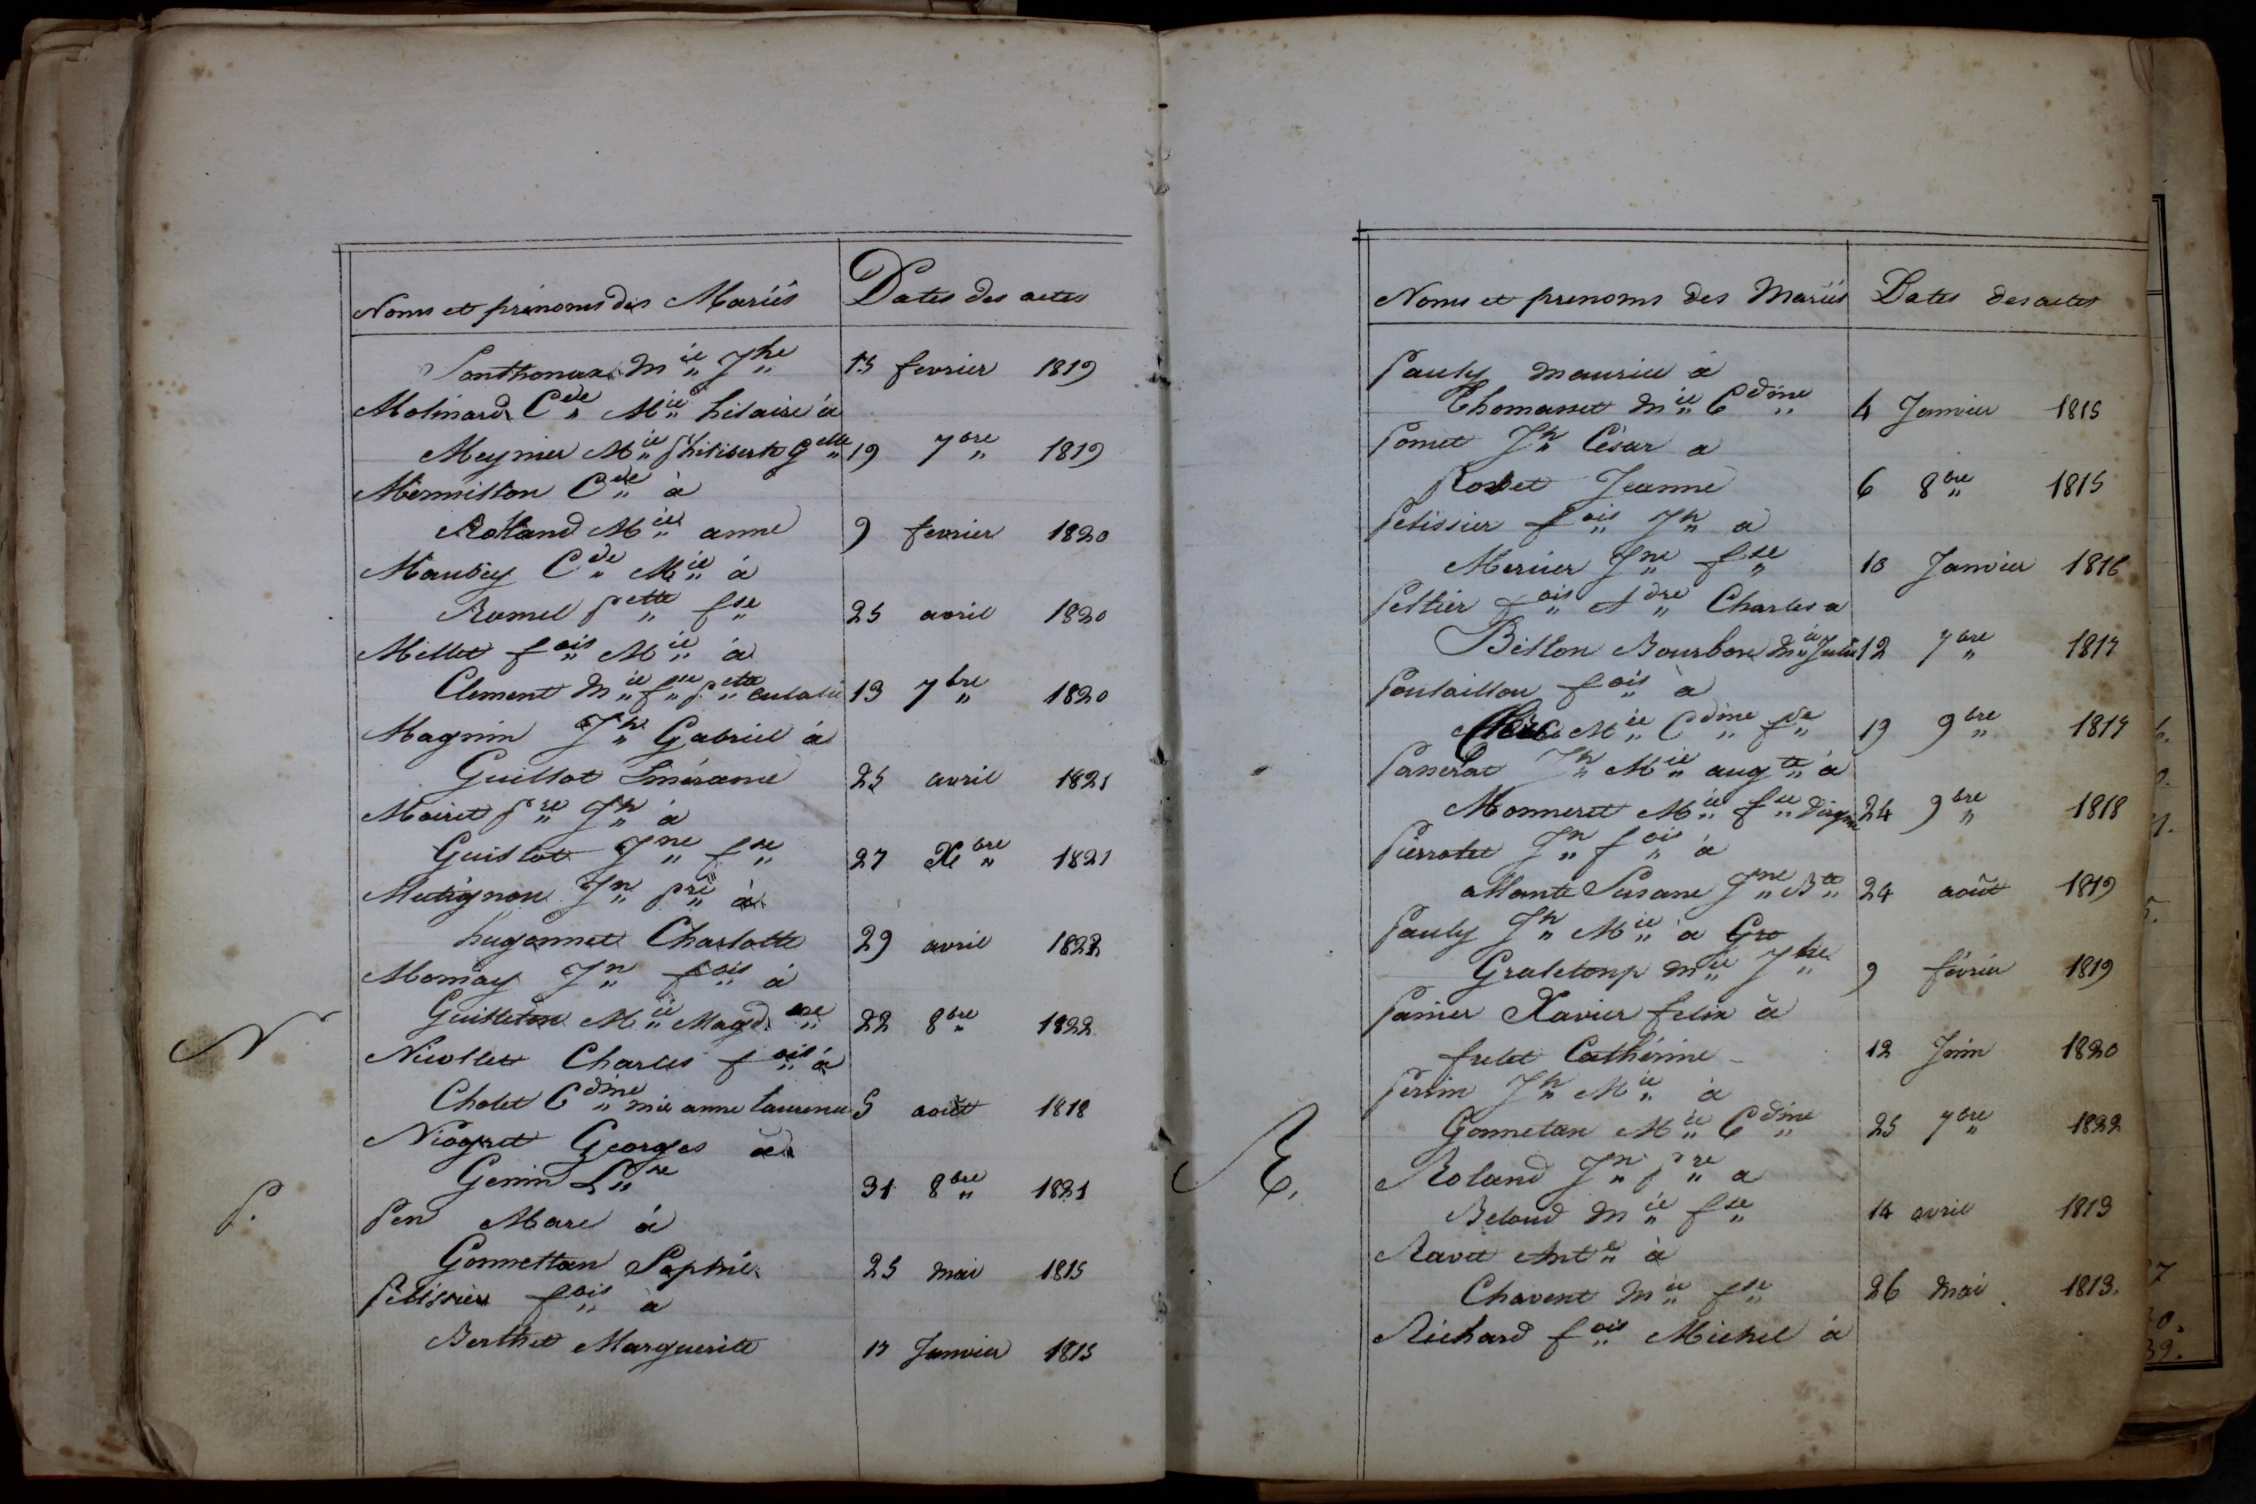 Noms et prénoms des Mariés Dates des actes
Sonthonax Mie Jhe 15 fevrier 1819
Molinard Cde Mie hilaire à
Meynier Mie philiberte Gelle 19 7bre 1819
Mermillon Cde à
Rolland Mie anne 9 fevrier 1820
Maubey Cde Mie à
Ramel pette fse 25 avril 1820
Millet fois Mie à
Clement Mie fse pette eulalie 13 7bre 1820
Magnin Jh Gabriel à
Guillot Emérame 25 avril 1821
Moiret pre Jh à
Guillot Jne fse 27 Xbre 1821
Mutignon Jn pre à
hugonnet Charlotte 29 avril 1822
Momay Jn fois à
Guilleton Mie Magdne 22 8bre 1822
N
Nicollet Charles fois à
Cholet Cdine mie anne laurence 5 août 1818
Niogret Georges à
Genin Lse 31 8bre 1821
P.
Pen Marc à
Gonnettan Sophie 25 mai 1815
Pelissier fois à
Berthet Marguerite 17 Janvier 1815
Noms et prenoms des Mariés Dates des actes
Pauly maurice à
Thomasset Mie Cdine 4 Janvier 1815
Pomet Jh César a
Rosset Jeanne 6 8bre 1815
Pelissier fois Jh a
Mercier Jne fse 10 Janvier 1816
Peltier fois Adre Charles a
Billon Bourbon Mie Julie 12 7bre 1817
Poulaillon fois à
Mie Cdine fse 19 9bre 1817
Panerat Jh Mie augte à
Monneret Mie fse 24 9bre 1818
Pierrotet Jn fois à
allante Susane Jne Bte 24 août 1819
Pauly Jh Mie à Gro
Graleloup Mie Jhe 9 février 1819
Panier Xavier felix à
frelet Cathérine 12 Juin 1820
Perrin Jh Mie à
Gonnetan Mie Cdine 25 7bre 1822
R.
Roland Jn pre a
Beloud Mie fse 14 avril 1813
Ravet Ante à
Chavent Mie fse 26 mai 1813.
Richard fois Michel à